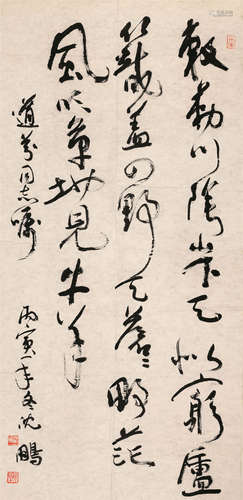 敕勒川陰山下天似穹廬
籠蓋四野天蒼蒼野茫茫
風吹草地見牛羊
同志囑
丙寅年冬沈鵬